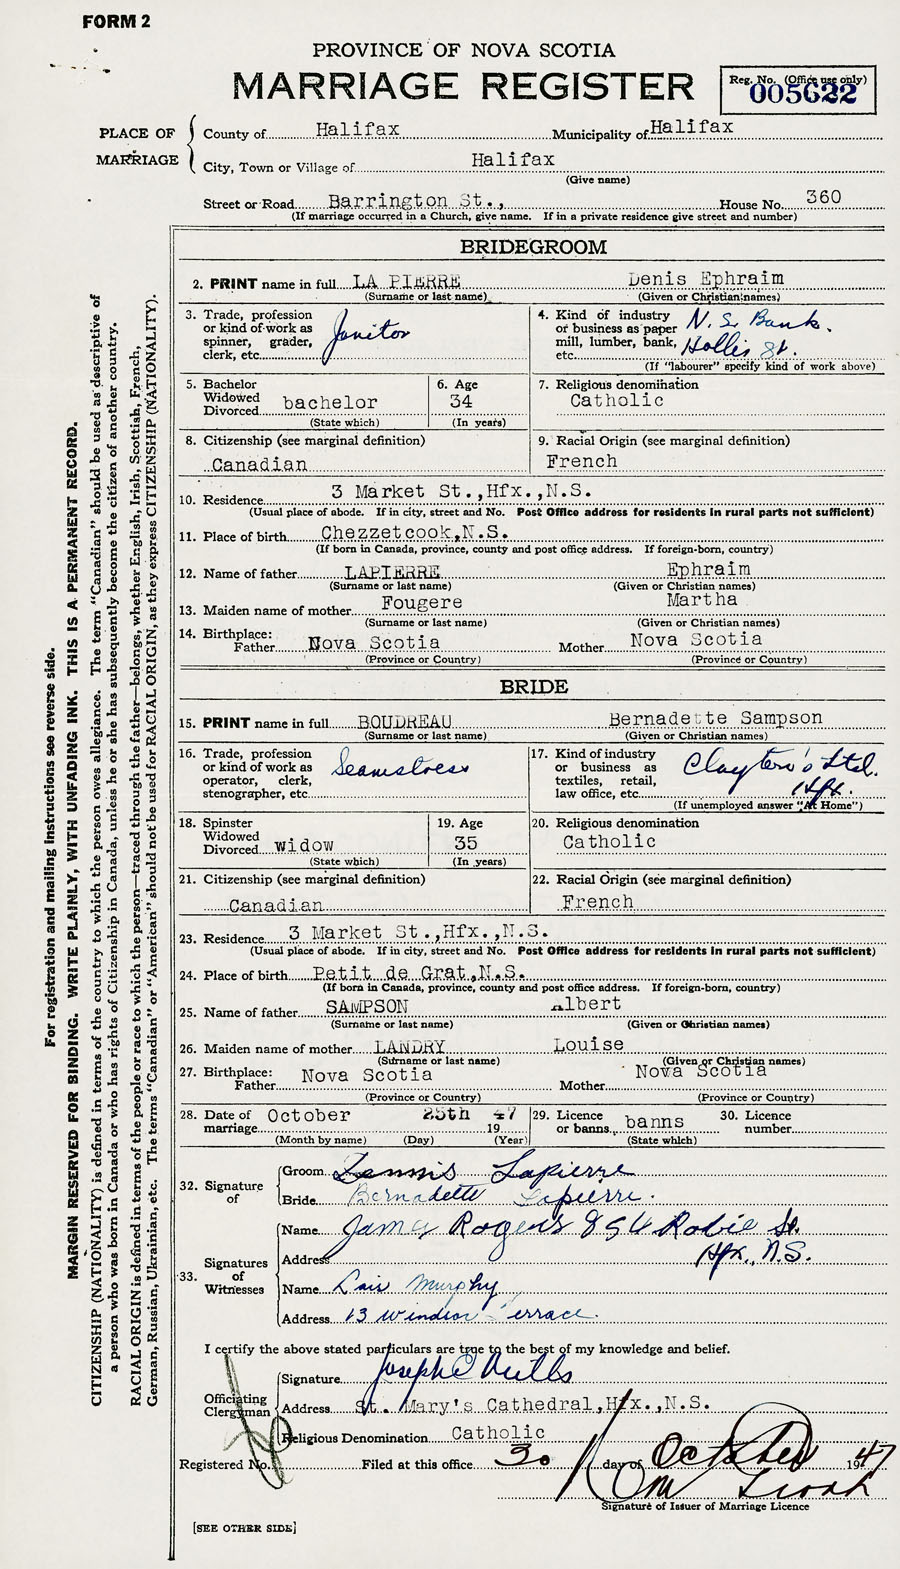 FORM 2
PROVINCE OF NOVA SCOTIA
MARRIAGE REGISTER
Reg. No. (Office use only)
005622
PLACE OF MARRIAGE
County of Halifax Municipality of Halifax
City, Town or Village of Halifax
(Give name)
Street or Road Barrington St., House No. 360
(If marriage occurred in a Church, give name. If in a private residence give street and number)
BRIDEGROOM
2. PRINT name in full LA PIERRE Denis Ephraim
(Surname or last name) (Given or Christian names)
3. Trade, profession or kind of work as spinner, grader, clerk, etc. Janitor
4. Kind of industry or business as paper mill, lumber, bank, etc. N. S. Bank. Hollis St.
(If "labourer" specify kind of work above)
5. Bachelor Widowed Divorced bachelor
(State which)
6. Age 34
(In years)
7. Religious denomination Catholic
8. Citizenship (see marginal definition) Canadian
9. Racial Origin (see marginal definition) French
10. Residence 3 Market St.,Hfx.,N.S.
(Usual place of abode. If in city, street and No. Post Office address for residents in rural parts not sufficient)
11. Place of birth Chezzetcook,N.S.
(If born in Canada, province, county and post office address. If foreign-born, country)
12. Name of father LAPIERRE Ephraim
(Surname or last name) (Given or Christian names)
13. Maiden name of mother Fougere Martha
(Surname or last name) (Given or Christian names)
14. Birthplace: Father Nova Scotia Mother Nova Scotia
(Province or Country) (Province or Country)
BRIDE
15. PRINT name in full BOUDREAU Bernadette Sampson
(Surname or last name) (Given or Christian names)
16. Trade, profession or kind of work as operator, clerk, stenographer, etc. Seamstress
17. Kind of industry or business as textiles, retail, law office, etc. Clayton's Ltd. Hfx.
(If unemployed answer "At Home")
18. Spinster Widowed Divorced widow
(State which)
19. Age 35
(In years)
20. Religious denomination Catholic
21. Citizenship (see marginal definition) Canadian
22. Racial Origin (see marginal definition) French
23. Residence 3 Market St.,Hfx.,N.S.
(Usual place of abode. If in city, street and No. Post Office address for residents in rural parts not sufficient)
24. Place of birth Petit de Grat,N.S.
(If born in Canada, province, county and post office address. If foreign-born, country)
25. Name of father SAMPSON Albert
(Surname or last name) (Given or Christian names)
26. Maiden name of mother LANDRY Louise
(Surname or last name) (Given or Christian names)
27. Birthplace: Father Nova Scotia Mother Nova Scotia
(Province or Country) (Province or Country)
28. Date of marriage October 25th 1947
(Month by name) (Day) (Year)
29. Licence or banns banns
(State which)
30. Licence number
32. Signature of
Groom Dennis Lapierre
Bride Bernadette Lapierre.
33. Signatures of Witnesses
Name James Rogers 894 Robie St.
Address Hfx., N.S.
Name Lois Murphy
Address 13 Windsor Terrace
I certify the above stated particulars are true to the best of my knowledge and belief.
Officiating Clergyman
Signature Joseph
Address St. Mary's Cathedral,Hfx.,N.S.
Religious Denomination Catholic
Registered No. Filed at this office 30 day of October 1947
Signature of Issuer of Marriage Licence
[SEE OTHER SIDE]
For registration and mailing instructions see reverse side.
MARGIN RESERVED FOR BINDING. WRITE PLAINLY, WITH UNFADING INK. THIS IS A PERMANENT RECORD.
CITIZENSHIP (NATIONALITY) is defined in terms of the country to which the person owes allegiance. The term "Canadian" should be used as descriptive of
a person who was born in Canada or who has rights of Citizenship in Canada, unless he or she has subsequently become the citizen of another country.
RACIAL ORIGIN is defined in terms of the people or race to which the person—traced through the father—belongs, whether English, Irish, Scottish, French,
German, Russian, Ukrainian, etc. The terms "Canadian" or "American" should not be used for RACIAL ORIGIN, as they express CITIZENSHIP (NATIONALITY).